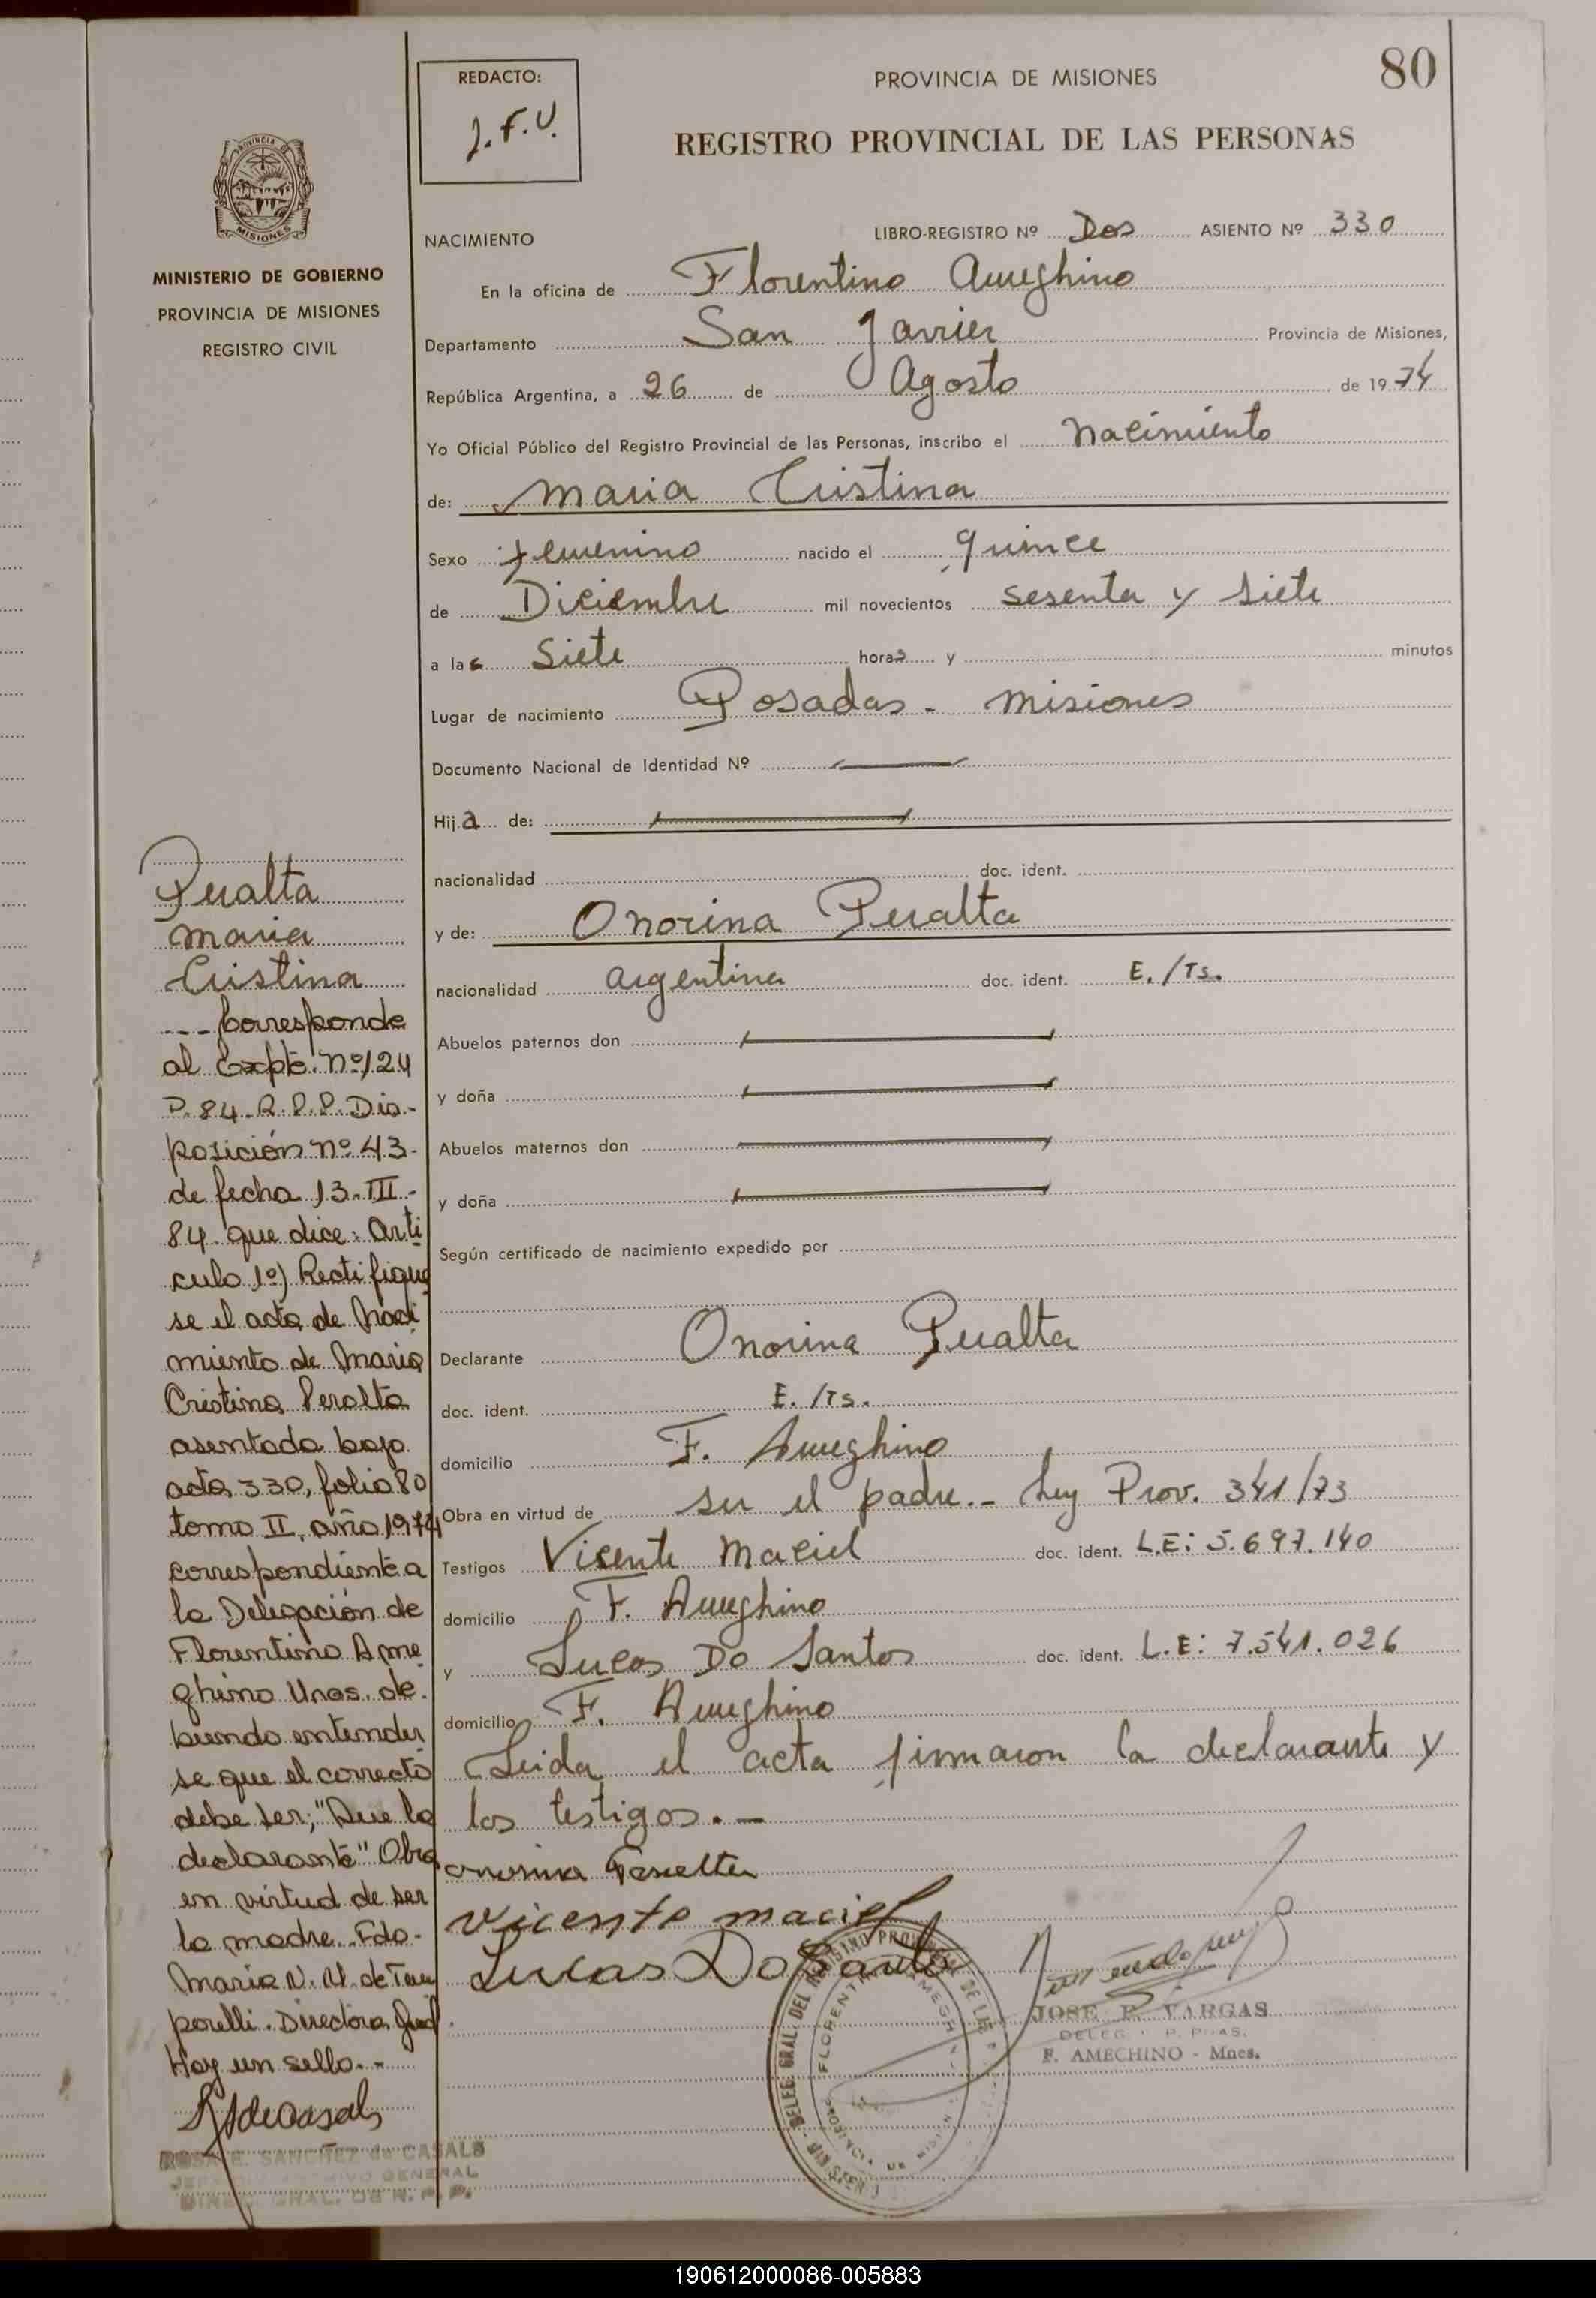 80
REDACTO:
J.F.V.
PROVINCIA DE MISIONES
REGISTRO PROVINCIAL DE LAS PERSONAS
MISIONES
MINISTERIO DE GOBIERNO
PROVINCIA DE MISIONES
REGISTRO CIVIL
NACIMIENTO
LIBRO-REGISTRO Nº Dos ASIENTO Nº 330
En la oficina de Florentino Ameghino
Departamento San Javier Provincia de Misiones,
República Argentina, a 26 de Agosto de 1974
Yo Oficial Público del Registro Provincial de las Personas, inscribo el Nacimiento
de: Maria Cristina
Sexo femenino nacido el quince
de Diciembre mil novecientos sesenta y siete
a las siete horas y minutos
Lugar de nacimiento Posadas - Misiones
Documento Nacional de Identidad Nº
Hija de:
nacionalidad doc. ident.
y de: Onorina Peralta
nacionalidad argentina doc. ident. E./Ts.
Abuelos paternos don
y doña
Abuelos maternos don
y doña
Según certificado de nacimiento expedido por
Declarante Onorina Peralta
doc. ident. E./Ts.
domicilio F. Ameghino
Obra en virtud de ser el padre.- Ley Prov. 341/73
Testigos Vicente Maciel doc. ident. L.E: 5.697.140
domicilio F. Ameghino
y Lucas Do Santos doc. ident. L.E: 7.541.026
domicilio F. Ameghino
Leida el acta firmaron la declarante y
los testigos.-
Vicente maciel
Lucas Do Santo
JOSE R. VARGAS
F. AMECHINO - Mnes.
Peralta
Maria
Cristina
--- Corresponde
al Expte. Nº 124
P. 84. R.P.P. Dis-
posición Nº 43-
de fecha 13-III-
84 que dice: Artí
culo 1º) Rectifique
se el acta de Naci
miento de Maria
Cristina Peralta
asentada bajo
acta 330, folio 80
tomo II, año 1974
correspondiente a
la Delegación de
Florentino Ame
ghino Mnes. de.
biendo entender
se que el correcto
debe ser; "Que la
declarante" Obra
en virtud de ser
la madre. Fdo-
Maria N. N. de Tem
porelli. Directora Gral
Hay un sello.-
ROSA E. SANCHEZ de CASALS
190612000086-005883